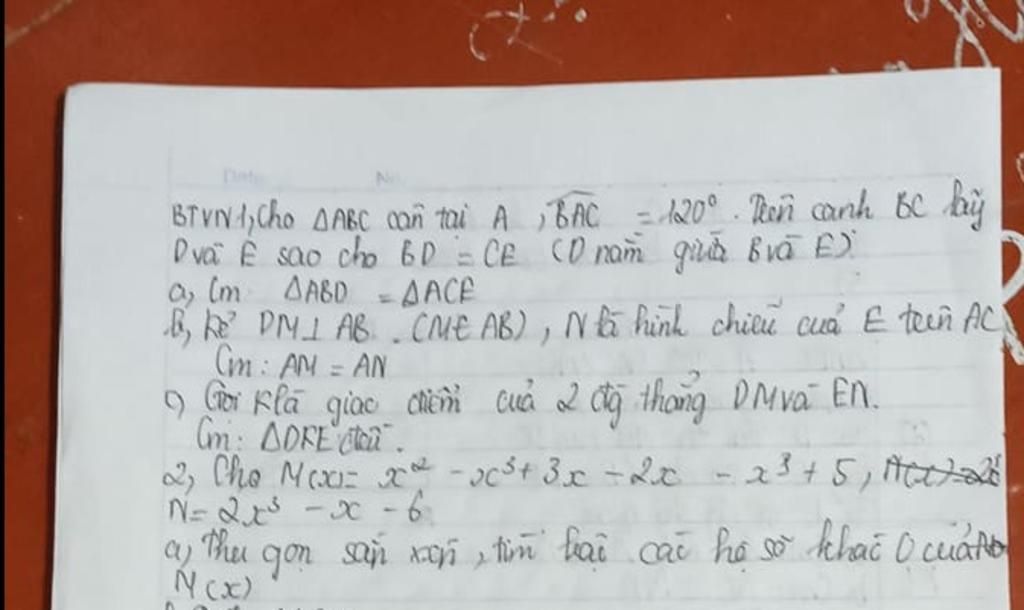 BTVN1, Cho ΔABC cân tại A, BAC = 120°. Trên cạnh BC lấy
D và E sao cho BD = CE (D nằm giữa B và E).
a, Cm ΔABD = ΔACE
b, kẻ DM ⊥ AB. (M ∈ AB), N là hình chiếu của E trên AC
Cm: AM = AN
c, Gọi K là giao điểm của 2 đg thẳng DM và EN.
Cm: ΔDKE đều.
2, Cho M(x) = x² - x³ + 3x - 2x - x³ + 5,
N = 2x³ - x - 6
a, Thu gọn sắp xếp, tìm bậc các hệ số khác 0 của
M(x)